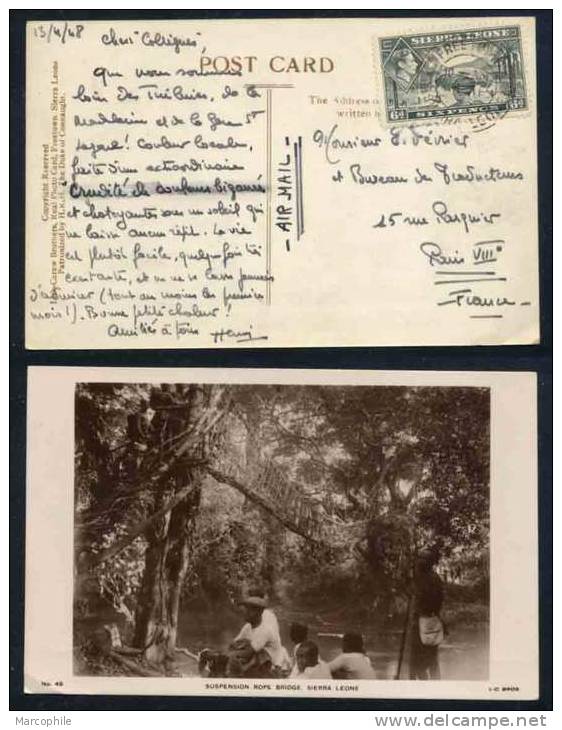 13/4/48
Chers Collègues,
Que nous sommes
loin des Tuileries, de la
Madeleine et de la Gare St
Lazare! Couleur locale,
faite d'une extraordinaire
crudité de couleurs bigarrées
et chatoyantes sous un soleil qui
ne laisse aucun répit. La vie
est plutôt facile, quelquefois très
et on ne se lasse jamais
d'admirer (tout au moins les premiers
mois!). Bonne petite chaleur!
Amitiés à tous Henri
POST CARD
The Address
written
AIR MAIL
SIERRA LEONE
6d SIXPENCE 6d
Monsieur E. Février
et Bureau des Traducteurs
15 rue Pasquier
Paris VIIIe
France
Copyright Reserved
Lisk-Carew Brothers, Real Photo Card, Freetown, Sierra Leone
Patronized by H.R.H. The Duke of Connaught.
No. 46
SUSPENSION ROPE BRIDGE, SIERRA LEONE
Marcophile
www.delcampe.net